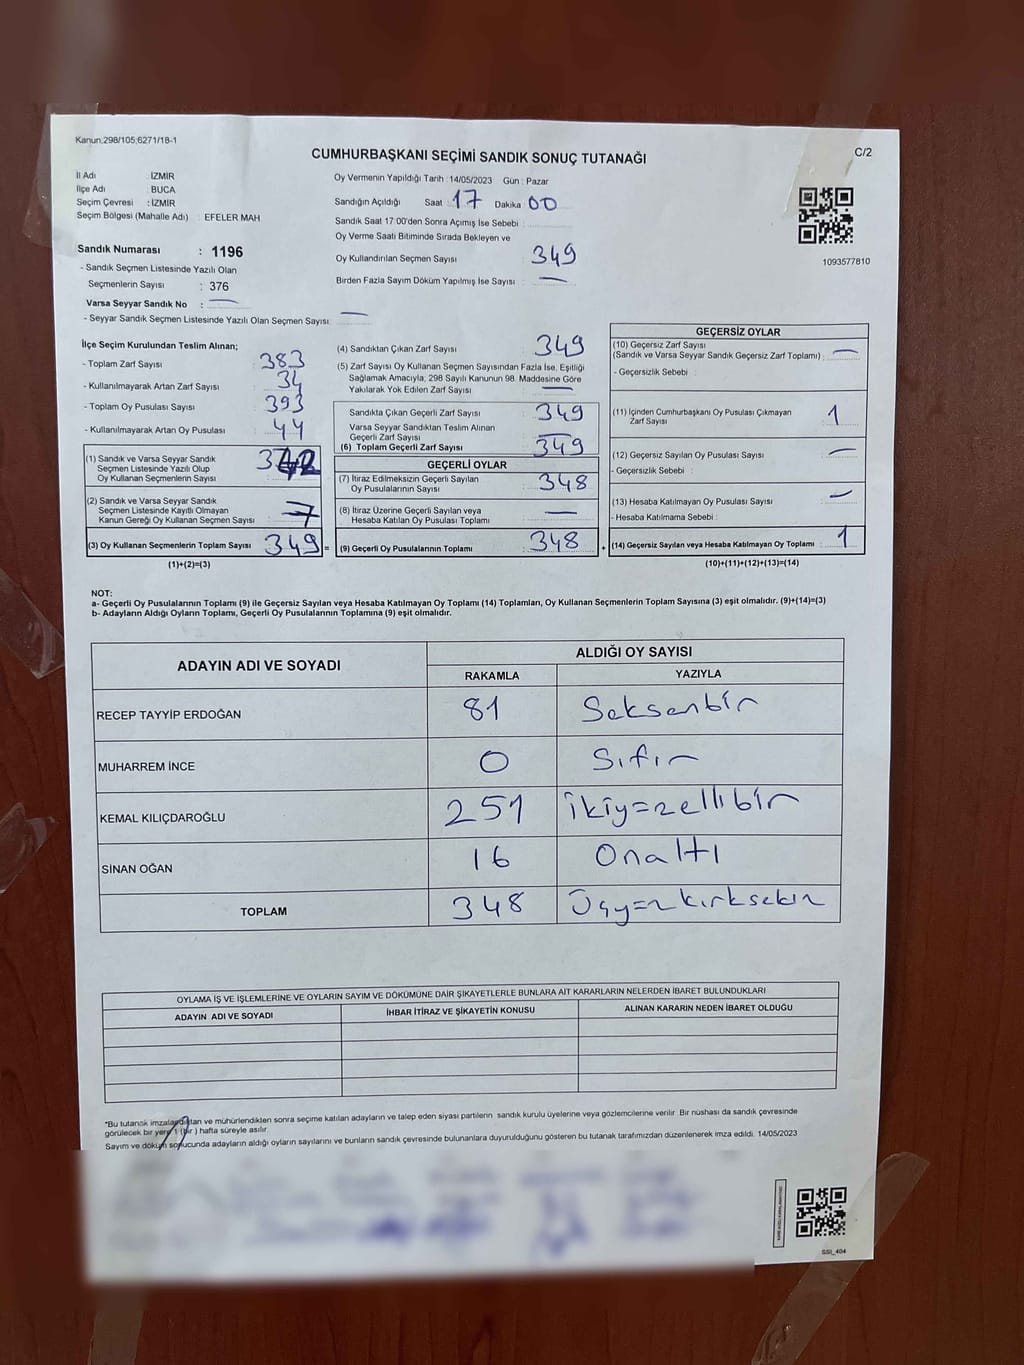 Kanun;298/105;6271/18-1
CUMHURBAŞKANI SEÇİMİ SANDIK SONUÇ TUTANAĞI
C/2
İl Adı : İZMİR
İlçe Adı : BUCA
Seçim Çevresi : İZMİR
Seçim Bölgesi (Mahalle Adı) : EFELER MAH
Sandık Numarası : 1196
- Sandık Seçmen Listesinde Yazılı Olan
Seçmenlerin Sayısı : 376
Varsa Seyyar Sandık No :
- Seyyar Sandık Seçmen Listesinde Yazılı Olan Seçmen Sayısı :
Oy Vermenin Yapıldığı Tarih : 14/05/2023 Gün : Pazar
Sandığın Açıldığı Saat : 17 Dakika 00
Sandık Saat 17:00'den Sonra Açımış İse Sebebi :
Oy Verme Saati Bitiminde Sırada Bekleyen ve
Oy Kullandırılan Seçmen Sayısı : 349
Birden Fazla Sayım Döküm Yapılmış İse Sayısı :
1093577810
İlçe Seçim Kurulundan Teslim Alınan;
- Toplam Zarf Sayısı : 383
- Kullanılmayarak Artan Zarf Sayısı : 34
- Toplam Oy Pusulası Sayısı : 393
- Kullanılmayarak Artan Oy Pusulası : 44
(1) Sandık ve Varsa Seyyar Sandık
Seçmen Listesinde Yazılı Olup
Oy Kullanan Seçmenlerin Sayısı : 342
(2) Sandık ve Varsa Seyyar Sandık
Seçmen Listesinde Kayıtlı Olmayan
Kanun Gereği Oy Kullanan Seçmen Sayısı : 7
(3) Oy Kullanan Seçmenlerin Toplam Sayısı : 349 =
(1)+(2)=(3)
(4) Sandıktan Çıkan Zarf Sayısı : 349
(5) Zarf Sayısı Oy Kullanan Seçmen Sayısından Fazla İse, Eşitliği
Sağlamak Amacıyla, 298 Sayılı Kanunun 98. Maddesine Göre
Yakılarak Yok Edilen Zarf Sayısı :
Sandıkta Çıkan Geçerli Zarf Sayısı : 349
Varsa Seyyar Sandıktan Teslim Alınan
Geçerli Zarf Sayısı :
(6) Toplam Geçerli Zarf Sayısı : 349
GEÇERLİ OYLAR
(7) İtiraz Edilmeksizin Geçerli Sayılan
Oy Pusulalarının Sayısı : 348
(8) İtiraz Üzerine Geçerli Sayılan veya
Hesaba Katılan Oy Pusulası Toplamı :
(9) Geçerli Oy Pusulalarının Toplamı : 348 +
GEÇERSİZ OYLAR
(10) Geçersiz Zarf Sayısı
(Sandık ve Varsa Seyyar Sandık Geçersiz Zarf Toplamı) :
- Geçersizlik Sebebi :
(11) İçinden Cumhurbaşkanı Oy Pusulası Çıkmayan
Zarf Sayısı : 1
(12) Geçersiz Sayılan Oy Pusulası Sayısı :
- Geçersizlik Sebebi :
(13) Hesaba Katılmayan Oy Pusulası Sayısı :
- Hesaba Katılmama Sebebi :
(14) Geçersiz Sayılan veya Hesaba Katılmayan Oy Toplamı : 1
(10)+(11)+(12)+(13)=(14)
NOT:
a- Geçerli Oy Pusulalarının Toplamı (9) ile Geçersiz Sayılan veya Hesaba Katılmayan Oy Toplamı (14) Toplamları, Oy Kullanan Seçmenlerin Toplam Sayısına (3) eşit olmalıdır. (9)+(14)=(3)
b- Adayların Aldığı Oyların Toplamı, Geçerli Oy Pusulalarının Toplamına (9) eşit olmalıdır.
ADAYIN ADI VE SOYADI
ALDIĞI OY SAYISI
RAKAMLA YAZIYLA
RECEP TAYYİP ERDOĞAN 81 Seksenbir
MUHARREM İNCE 0 Sıfır
KEMAL KILIÇDAROĞLU 251 İkiyüzellibir
SİNAN OĞAN 16 Onaltı
TOPLAM 348 Üçyüzkırksekiz
OYLAMA İŞ VE İŞLEMLERİNE VE OYLARIN SAYIM VE DÖKÜMÜNE DAİR ŞİKAYETLERLE BUNLARA AİT KARARLARIN NELERDEN İBARET BULUNDUKLARI
ADAYIN ADI VE SOYADI İHBAR İTİRAZ VE ŞİKAYETİN KONUSU ALINAN KARARIN NEDEN İBARET OLDUĞU
*Bu tutanak imzalandıktan ve mühürlendikten sonra seçime katılan adayların ve talep eden siyasi partilerin sandık kurulu üyelerine veya gözlemcilerine verilir. Bir nüshası da sandık çevresinde
görülecek bir yere 1 (bir) hafta süreyle asılır.
Sayım ve döküm sonucunda adayların aldığı oyların sayılarını ve bunların sandık çevresinde bulunanlara duyurulduğunu gösteren bu tutanak tarafımızdan düzenlenerek imza edildi. 14/05/2023
SSI_404